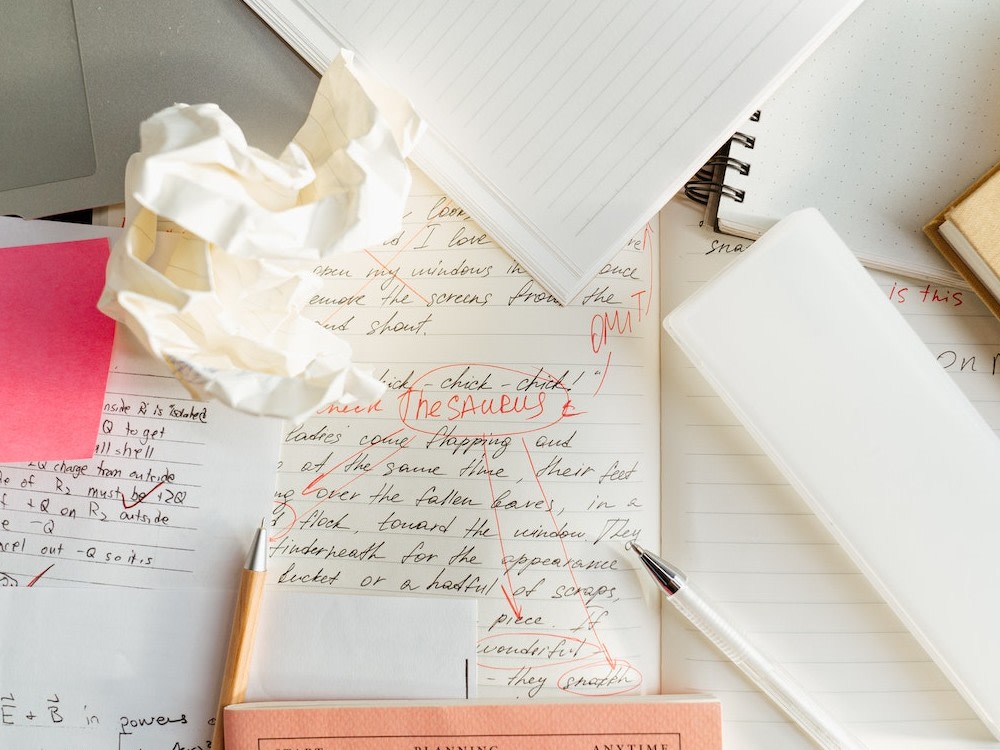 look
I love
open my windows in once
emove the screens from the
and shout.
OMIT
hick-chick-chick!"
check THESAURUS
ladies come flapping and
at the same time, their feet
ng over the fallen leaves, in a
flock, toward the window. They
underneath for the appearance
bucket or a hatful of scraps,
piece. If
wonderful-
- they snatch
inside R₁ is isolated
Q to get
ll shell
2Q charge from outside
de of R₂ must be +2Q
f +Q on R₂ outside
e -Q
ncel out -Q so it is
E⃗ + B⃗ in powers
sna
is this
on
START PLANNING ANYTIME